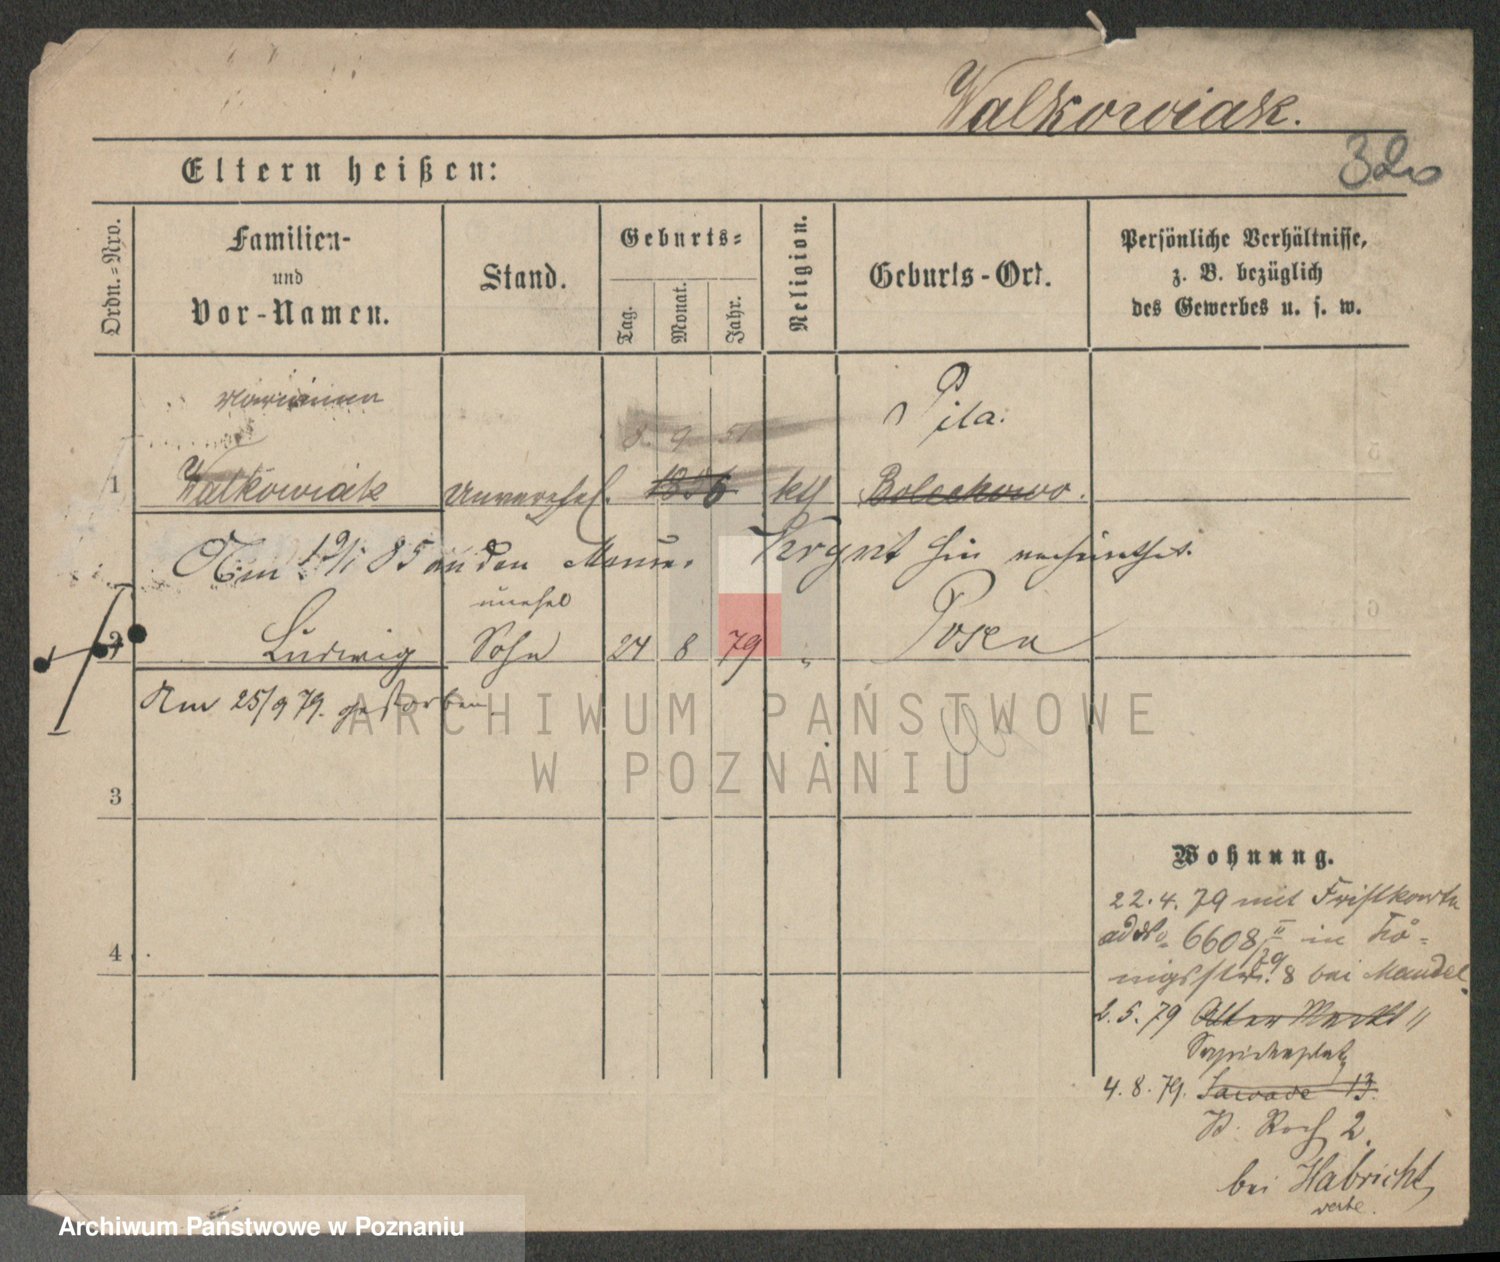 Walkowiak.
320
Eltern heißen:
Ordn.-Nro.
Familien-
und
Vor-Namen.
Stand.
Geburts-
Tag.
Monat.
Jahr.
Religion.
Geburts-Ort.
Persönliche Verhältnisse,
z. B. bezüglich
des Gewerbes u. s. w.
Pila.
8. 9 51
1 Walkowiak unverehel. 1856 kth Bolechowo.
Am 19/1 85 an den Maurer verheirathet.
unehel
2 Ludwig Sohn 24 8 79 " Posen
Am 25/9 79. gestorben.
ARCHIWUM PAŃSTWOWE
W POZNANIU
3
Wohnung.
22. 4. 79 mit Fristkarte
ad No. 6608 II/79 in Kö-
nigsstr. 8 bei Mandel.
4
2. 5. 79 Alter Markt
Sapiehaplatz
4. 8. 79. Zawade 13.
St. Roch 2.
bei Habricht
Archiwum Państwowe w Poznaniu